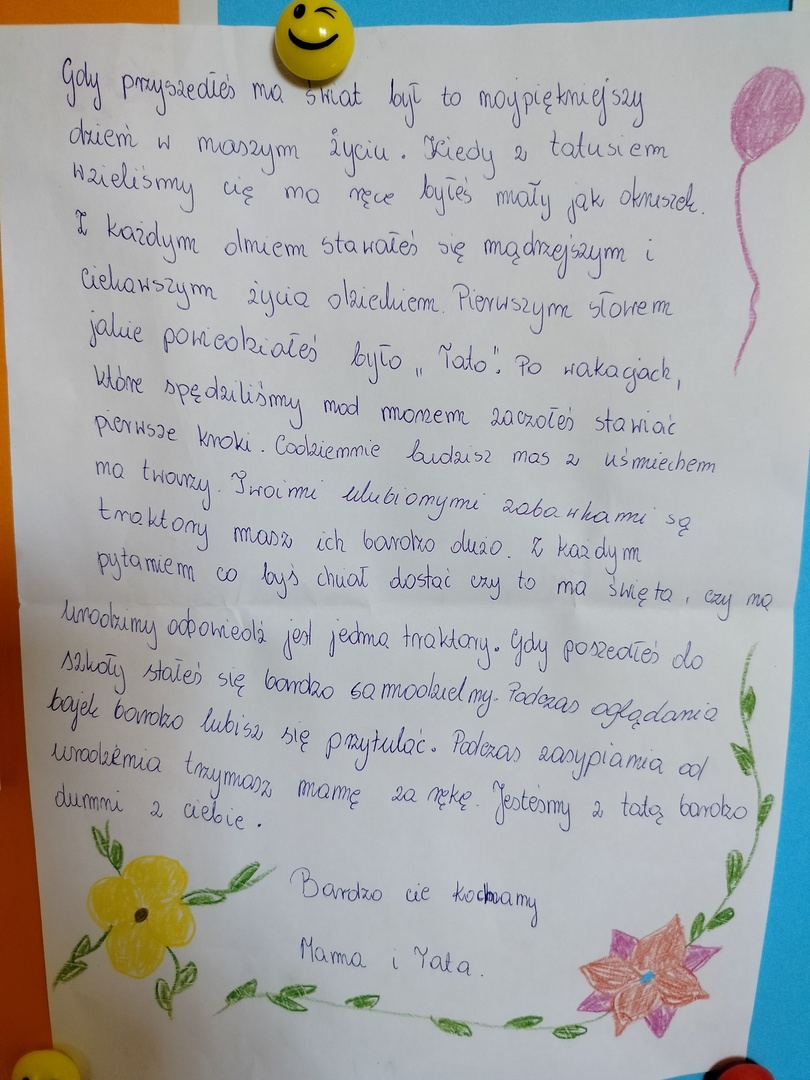 Gdy przyszedłeś na świat był to najpiękniejszy
dzień w naszym życiu. Kiedy z tatusiem
wzieliśmy cię na ręce byłeś mały jak okruszek.
Z każdym dniem stawałeś się mądrzejszym i
ciekawszym życia dzieckiem. Pierwszym słowem
jakie powiedziałeś było „Tato". Po wakacjach,
które spędziliśmy nad morzem zaczołeś stawiać
pierwsze kroki. Codziennie budzisz nas z uśmiechem
na twarzy. Twoimi ulubionymi zabawkami są
traktory masz ich bardzo dużo. Z każdym
pytaniem co byś chciał dostać czy to na święta, czy na
urodziny odpowiedź jest jedna traktory. Gdy poszedłeś do
szkoły stałeś się bardzo samodzielny. Podczas oglądania
bajek bardzo lubisz się przytulać. Podczas zasypiania od
urodzenia trzymasz mamę za rękę. Jesteśmy z tatą bardzo
dumni z ciebie.
Bardzo cie kochamy
Mama i Tata.